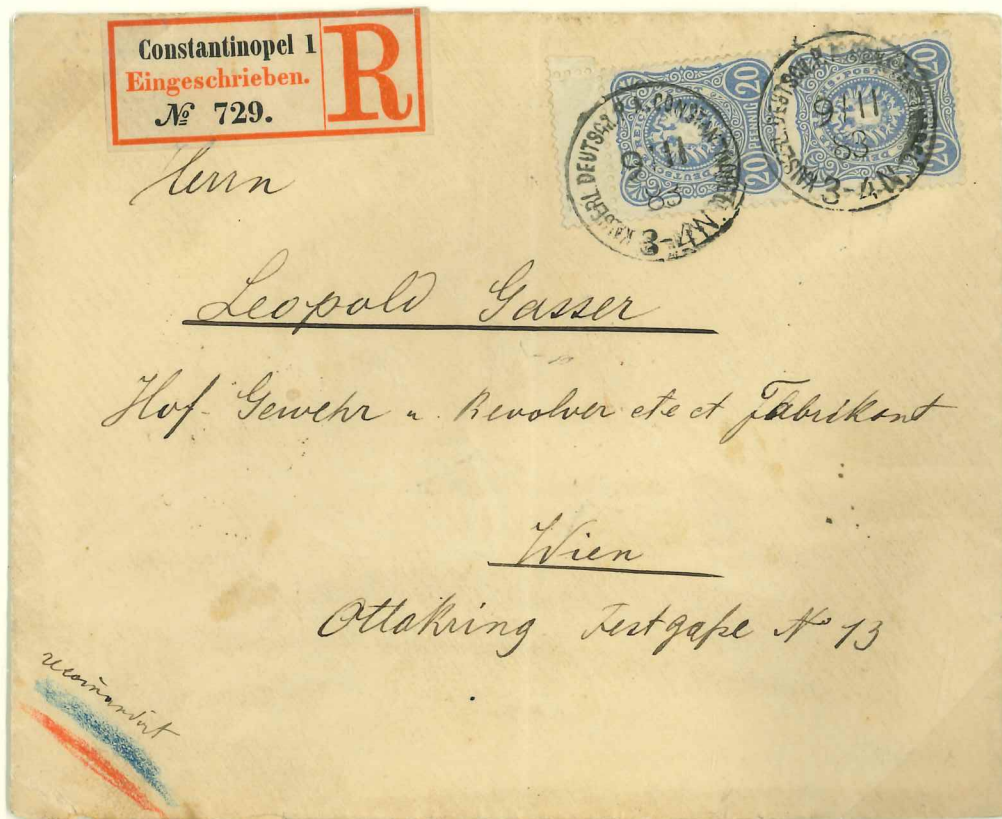 Constantinopel 1
Eingeschrieben.
№ 729.
R
KAISERL. DEUTSCH. P. A. CONSTANTINOPEL
9/11
83
3-4N.
KAISERL. DEUTSCH. P. A. CONSTANTINOPEL
9/11
83
3-4N.
20 PFENNIG 20
20 20
Herrn
Leopold Gasser
Hof- Gewehr u. Revolver etc et Fabrikant
Wien
Ottakring Festgaße No 13
recom̄andirt